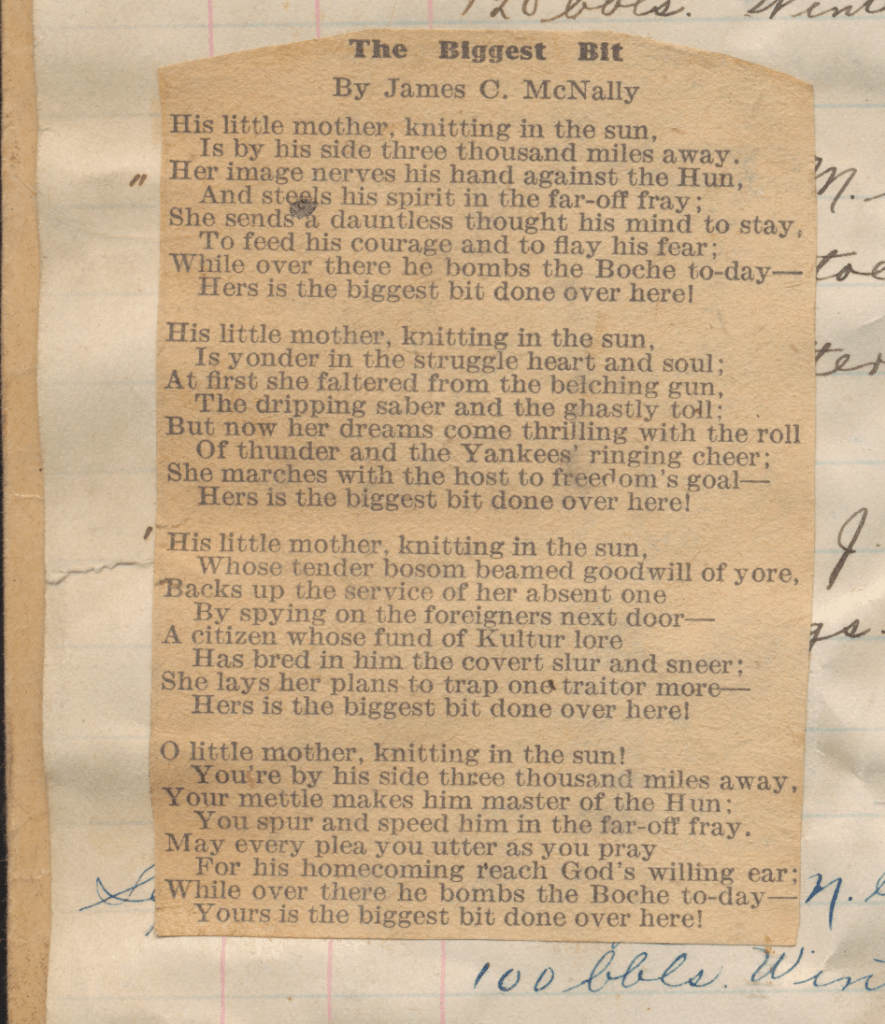 120 bbls. Wint
The Biggest Bit
By James C. McNally
His little mother, knitting in the sun,
Is by his side three thousand miles away.
Her image nerves his hand against the Hun,
And steels his spirit in the far-off fray;
She sends a dauntless thought his mind to stay,
To feed his courage and to flay his fear;
While over there he bombs the Boche to-day—
Hers is the biggest bit done over here!
His little mother, knitting in the sun,
Is yonder in the struggle heart and soul;
At first she faltered from the belching gun,
The dripping saber and the ghastly toll;
But now her dreams come thrilling with the roll
Of thunder and the Yankees' ringing cheer;
She marches with the host to freedom's goal—
Hers is the biggest bit done over here!
His little mother, knitting in the sun,
Whose tender bosom beamed goodwill of yore,
Backs up the service of her absent one
By spying on the foreigners next door—
A citizen whose fund of Kultur lore
Has bred in him the covert slur and sneer;
She lays her plans to trap one traitor more—
Hers is the biggest bit done over here!
O little mother, knitting in the sun!
You're by his side three thousand miles away,
Your mettle makes him master of the Hun;
You spur and speed him in the far-off fray.
May every plea you utter as you pray
For his homecoming reach God's willing ear;
While over there he bombs the Boche to-day—
Yours is the biggest bit done over here!
M.
J
N.
100 bbls. Win